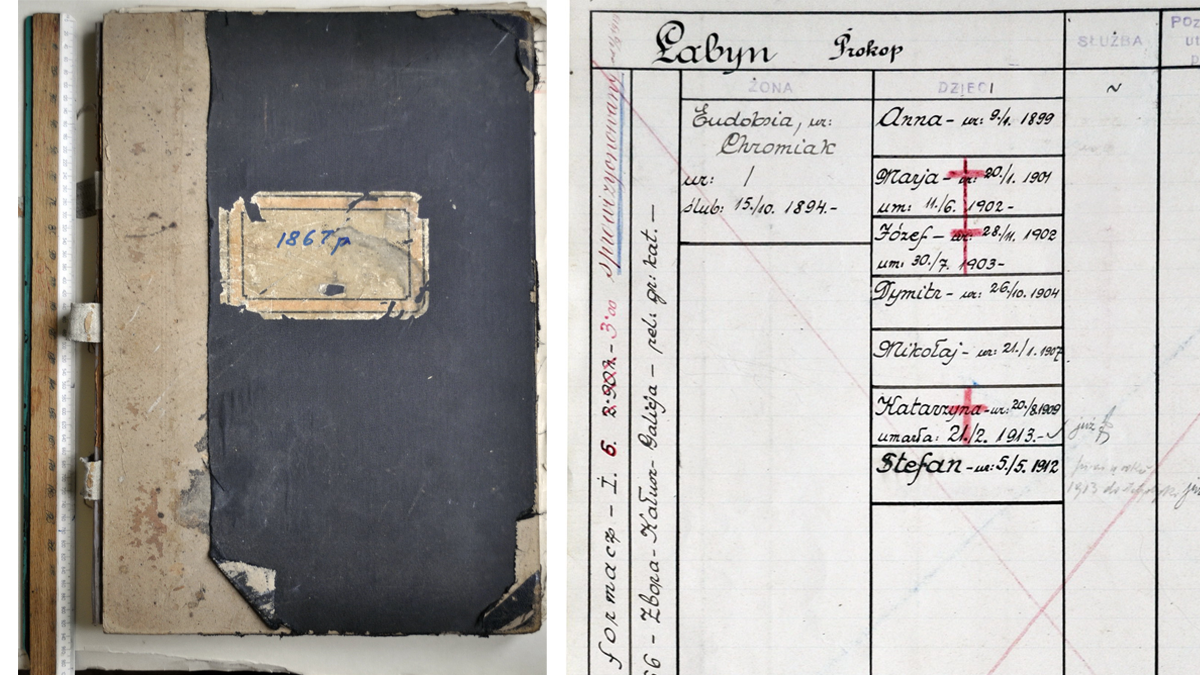 1867 p
Łabyn Prokop
SŁUŻBA
POZ
ŻONA
DZIECI
Eudoksia, ur:
Chromiak
ur: /
ślub: 15./10. 1894.-
Anna - ur: 9./1. 1899
Marja - ur: 20./1. 1901
um: 11./6. 1902 -
Józef - ur: 28./11. 1902
um: 30./7. 1903 -
Dymitr - ur: 26./10. 1904
Mikołaj - ur: 21./1. 1907
Katarzyna - ur: 20./8. 1909
umarła: 21./2. 1913.-
Stefan - ur: 5./5. 1912
już
1913
formacz - I. 6. 2.907. - 3.00 sprowizyonowany
66 - Zbora - Kałusz - Galicja - rel: gr: kat. -